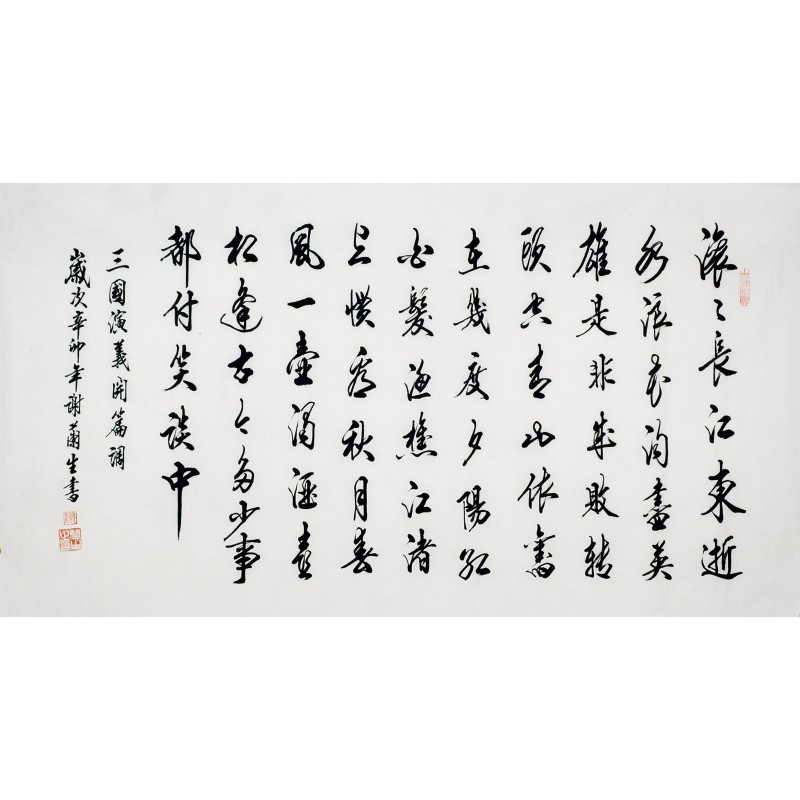 滚〻長江東逝
水浪花淘盡英
雄是非成敗转
頭空青山依舊
在幾度夕陽红
白髮渔樵江渚
上惯看秋月春
風一壺濁酒喜
相逢古今多少事
都付笑談中
三國演義開篇調
歲次辛卯年謝蘭生書